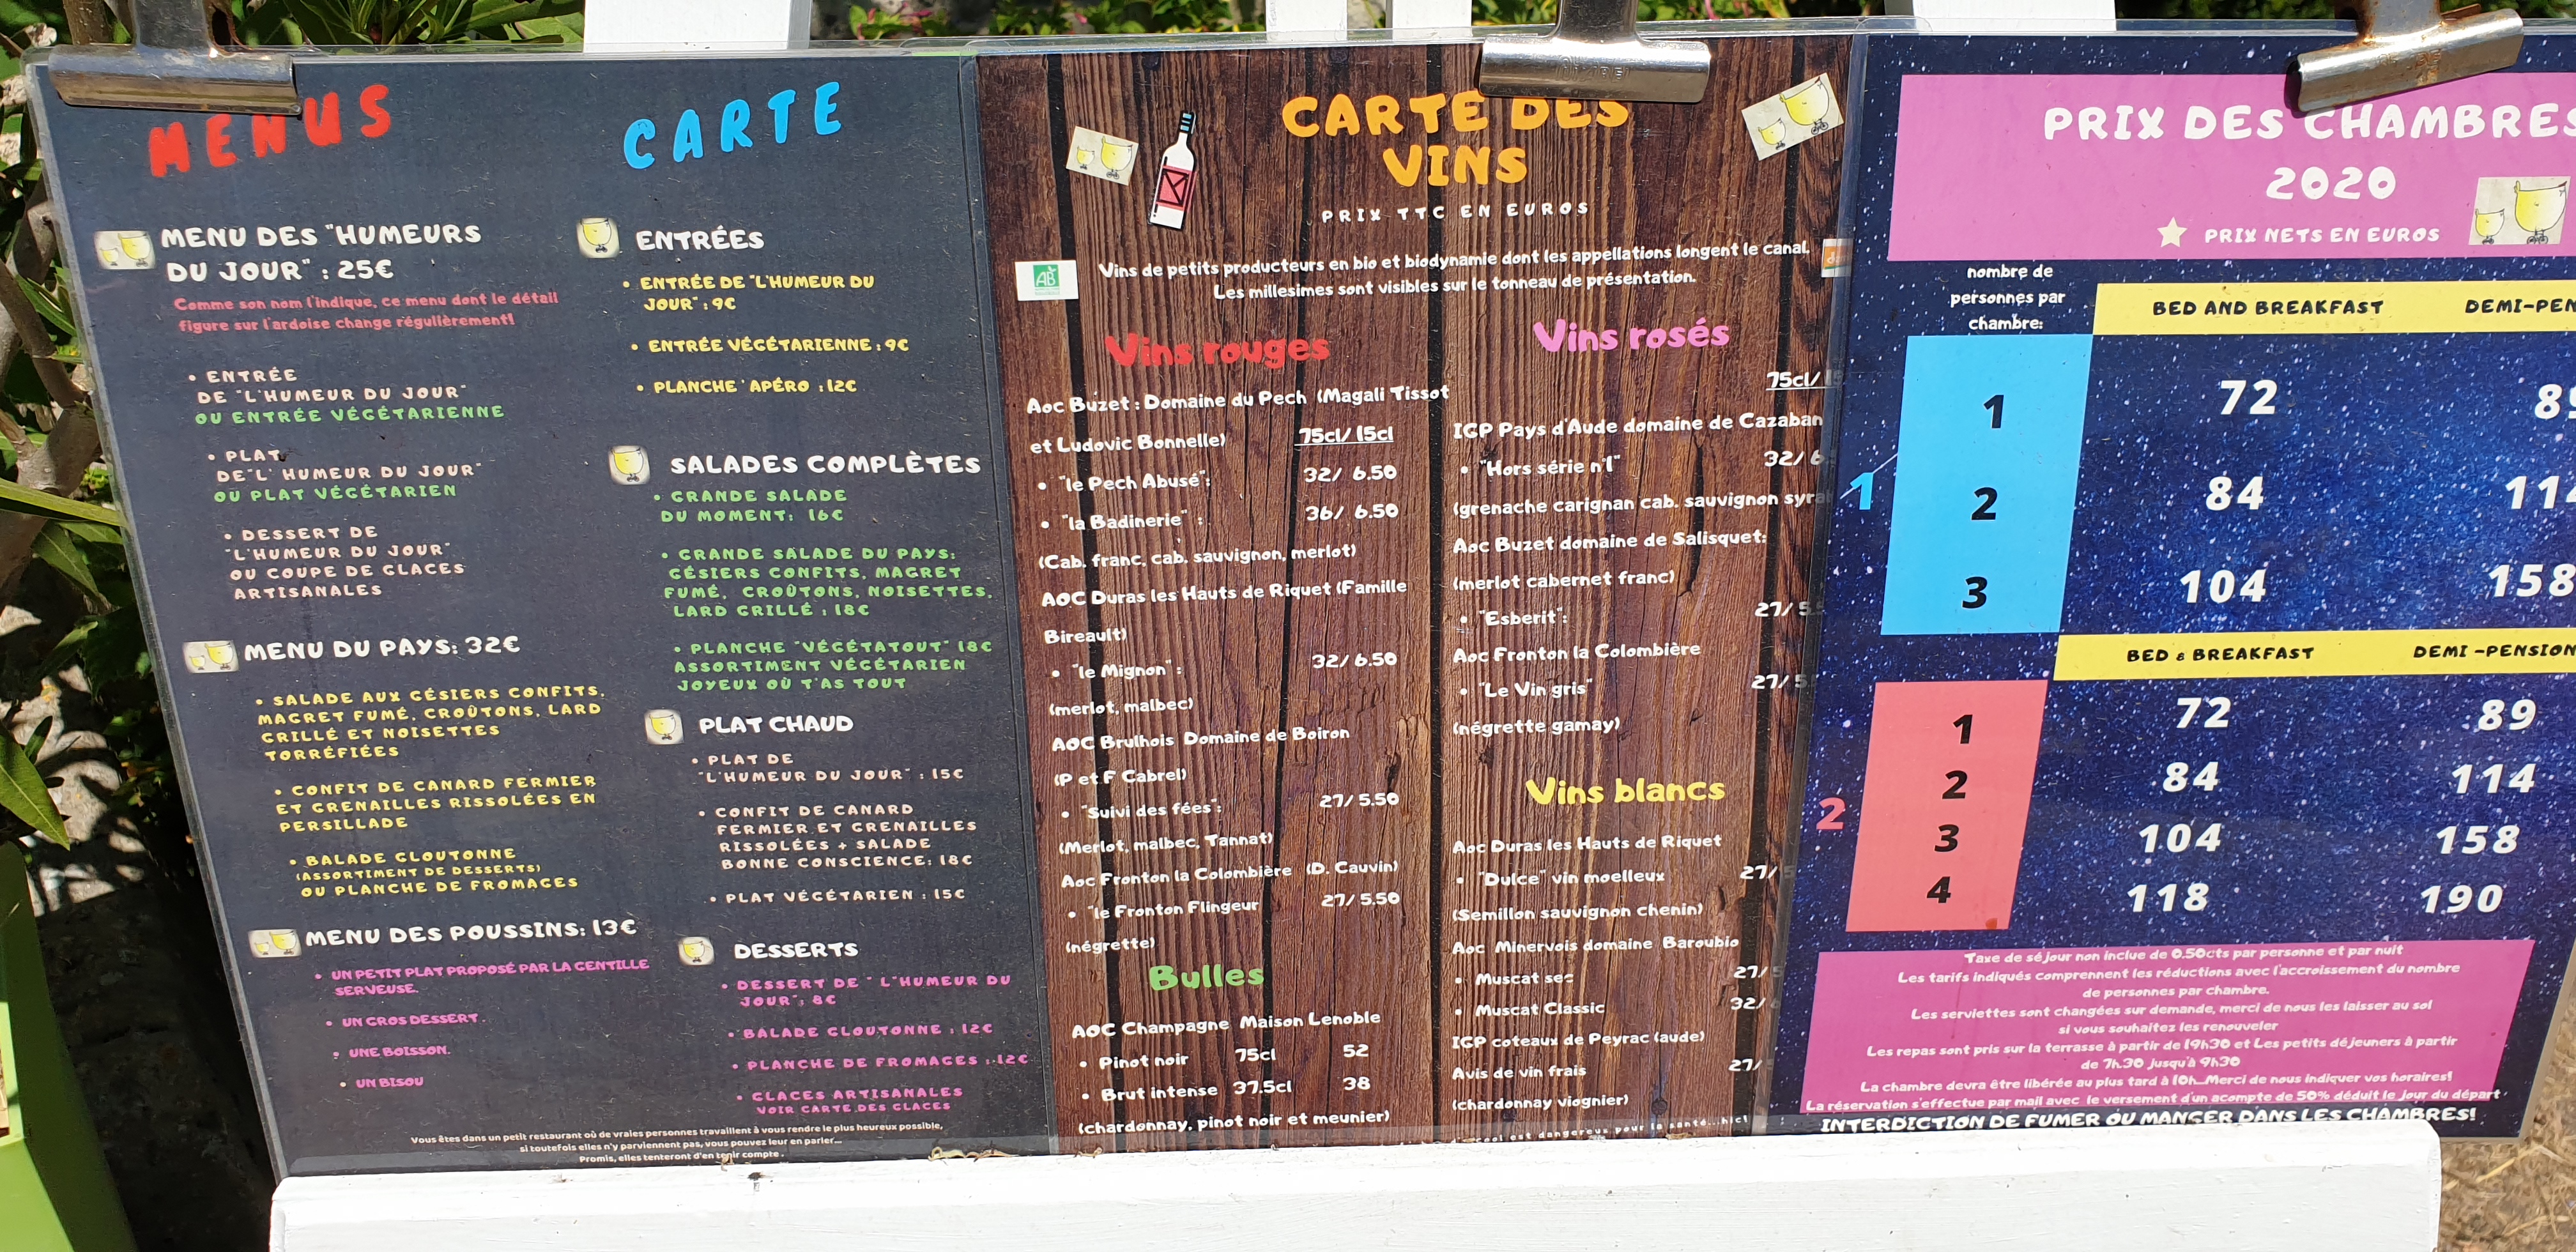 MENUS
MENU DES "HUMEURS
DU JOUR" : 25€
Comme son nom l'indique, ce menu dont le détail
figure sur l'ardoise change régulièrement!
• ENTRÉE
DE "L'HUMEUR DU JOUR"
OU ENTRÉE VÉGÉTARIENNE
• PLAT
DE"L' HUMEUR DU JOUR"
OU PLAT VÉGÉTARIEN
• DESSERT DE
"L'HUMEUR DU JOUR"
OU COUPE DE GLACES
ARTISANALES
MENU DU PAYS: 32€
• SALADE AUX GÉSIERS CONFITS,
MAGRET FUMÉ, CROÛTONS, LARD
GRILLÉ ET NOISETTES
TORRÉFIÉES
• CONFIT DE CANARD FERMIER
ET GRENAILLES RISSOLÉES EN
PERSILLADE
• BALADE GLOUTONNE
(ASSORTIMENT DE DESSERTS)
OU PLANCHE DE FROMAGES
MENU DES POUSSINS: 13€
• UN PETIT PLAT PROPOSÉ PAR LA GENTILLE
SERVEUSE.
• UN GROS DESSERT.
• UNE BOISSON.
• UN BISOU
CARTE
ENTRÉES
• ENTRÉE DE "L'HUMEUR DU
JOUR" : 9€
• ENTRÉE VÉGÉTARIENNE : 9€
• PLANCHE APÉRO : 12€
SALADES COMPLÈTES
• GRANDE SALADE
DU MOMENT: 16€
• GRANDE SALADE DU PAYS:
GÉSIERS CONFITS, MAGRET
FUMÉ, CROÛTONS, NOISETTES,
LARD GRILLÉ : 18€
• PLANCHE "VÉGÉTATOUT" 18€
ASSORTIMENT VÉGÉTARIEN
JOYEUX OÙ T'AS TOUT
PLAT CHAUD
• PLAT DE
"L'HUMEUR DU JOUR" : 15€
• CONFIT DE CANARD
FERMIER ET GRENAILLES
RISSOLÉES + SALADE
BONNE CONSCIENCE: 18€
• PLAT VÉGÉTARIEN : 15€
DESSERTS
• DESSERT DE " L'HUMEUR DU
JOUR": 8€
• BALADE GLOUTONNE : 12€
• PLANCHE DE FROMAGES : 12€
• GLACES ARTISANALES
VOIR CARTE DES GLACES
Vous êtes dans un petit restaurant où de vraies personnes travaillent à vous rendre le plus heureux possible,
si toutefois elles n'y parviennent pas, vous pouvez leur en parler...
Promis, elles tenteront d'en tenir compte .
CARTE DES
VINS
PRIX TTC EN EUROS
AB
Vins de petits producteurs en bio et biodynamie dont les appellations longent le canal.
Les millesimes sont visibles sur le tonneau de présentation.
Vins rouges
Aoc Buzet : Domaine du Pech (Magali Tissot
et Ludovic Bonnelle) 75cl/ 15cl
• "le Pech Abusé": 32/ 6.50
• "la Badinerie" : 36/ 6.50
(Cab. franc, cab. sauvignon, merlot)
AOC Duras les Hauts de Riquet (Famille
Bireault)
• "le Mignon" : 32/ 6.50
(merlot, malbec)
AOC Brulhois Domaine de Boiron
(P et F Cabrel)
• "Suivi des fées": 27/ 5.50
(Merlot, malbec, Tannat)
Aoc Fronton la Colombière (D. Cauvin)
• "le Fronton Flingeur 27/ 5.50
(négrette)
Bulles
AOC Champagne Maison Lenoble
• Pinot noir 75cl 52
• Brut intense 37.5cl 38
(chardonnay, pinot noir et meunier)
Vins rosés
75cl/
IGP Pays d'Aude domaine de Cazaban
• "Hors série n°1" 32/ 6
(grenache carignan cab. sauvignon syra
Aoc Buzet domaine de Salisquet:
(merlot cabernet franc)
• "Esberit": 27/ 5
Aoc Fronton la Colombière
• "Le Vin gris" 27/ 5
(négrette gamay)
Vins blancs
Aoc Duras les Hauts de Riquet
• "Dulce" vin moelleux 27/
(Semillon sauvignon chenin)
Aoc Minervois domaine Baroubio
• Muscat sec 27/
• Muscat Classic 32/
IGP coteaux de Peyrac (aude)
Avis de vin frais 27/
(chardonnay viognier)
cool est dangereux pour la santé...hic!
PRIX DES CHAMBRES
2020
PRIX NETS EN EUROS
nombre de
personnes par
chambre:
BED AND BREAKFAST DEMI-PEN
1
1 72 8
2 84 11
3 104 158
BED & BREAKFAST DEMI -PENSION
2
1 72 89
2 84 114
3 104 158
4 118 190
Taxe de séjour non inclue de 0.50cts par personne et par nuit
Les tarifs indiqués comprennent les réductions avec l'accroissement du nombre
de personnes par chambre.
Les serviettes sont changées sur demande, merci de nous les laisser au sol
si vous souhaitez les renouveler
Les repas sont pris sur la terrasse à partir de 19h30 et Les petits déjeuners à partir
de 7h.30 jusqu'à 9h30
La chambre devra être libérée au plus tard à 10h...Merci de nous indiquer vos horaires!
La réservation s'effectue par mail avec le versement d'un acompte de 50% déduit le jour du départ
INTERDICTION DE FUMER OU MANGER DANS LES CHAMBRES!